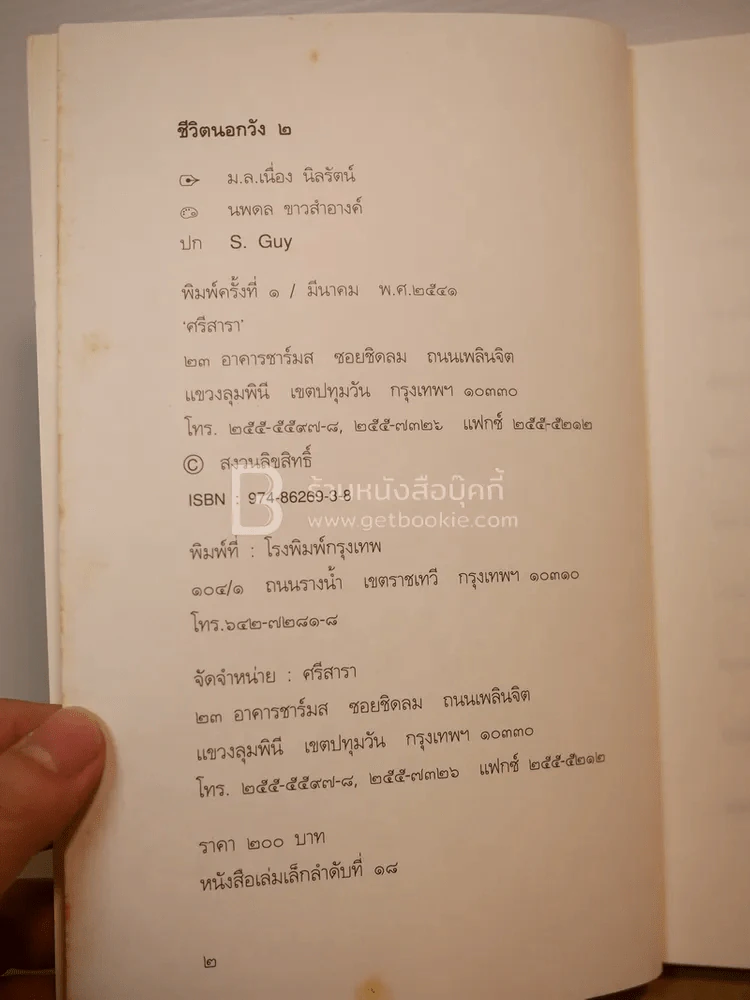 ชีวิตนอกวัง ๒
ม.ล.เนื่อง นิลรัตน์
นพดล ขาวสำอางค์
ปก S. Guy
พิมพ์ครั้งที่ ๑ / มีนาคม พ.ศ.๒๕๔๑
'ศรีสารา'
๒๓ อาคารชาร์มส ซอยชิดลม ถนนเพลินจิต
แขวงลุมพินี เขตปทุมวัน กรุงเทพฯ ๑๐๓๓๐
โทร. ๒๕๕-๕๕๙๗-๘, ๒๕๕-๗๓๒๖ แฟกซ์ ๒๕๕-๕๒๑๒
© สงวนลิขสิทธิ์
ISBN : 974-86269-3-8
B ร้านหนังสือบุ๊คกี้
www.getbookie.com
พิมพ์ที่ : โรงพิมพ์กรุงเทพ
๑๐๔/๑ ถนนรางน้ำ เขตราชเทวี กรุงเทพฯ ๑๐๓๑๐
โทร.๖๔๒-๗๒๘๑-๘
จัดจำหน่าย : ศรีสารา
๒๓ อาคารชาร์มส ซอยชิดลม ถนนเพลินจิต
แขวงลุมพินี เขตปทุมวัน กรุงเทพฯ ๑๐๓๓๐
โทร. ๒๕๕-๕๕๙๗-๘, ๒๕๕-๗๓๒๖ แฟกซ์ ๒๕๕-๕๒๑๒
ราคา ๒๐๐ บาท
หนังสือเล่มเล็กลำดับที่ ๑๘
๒